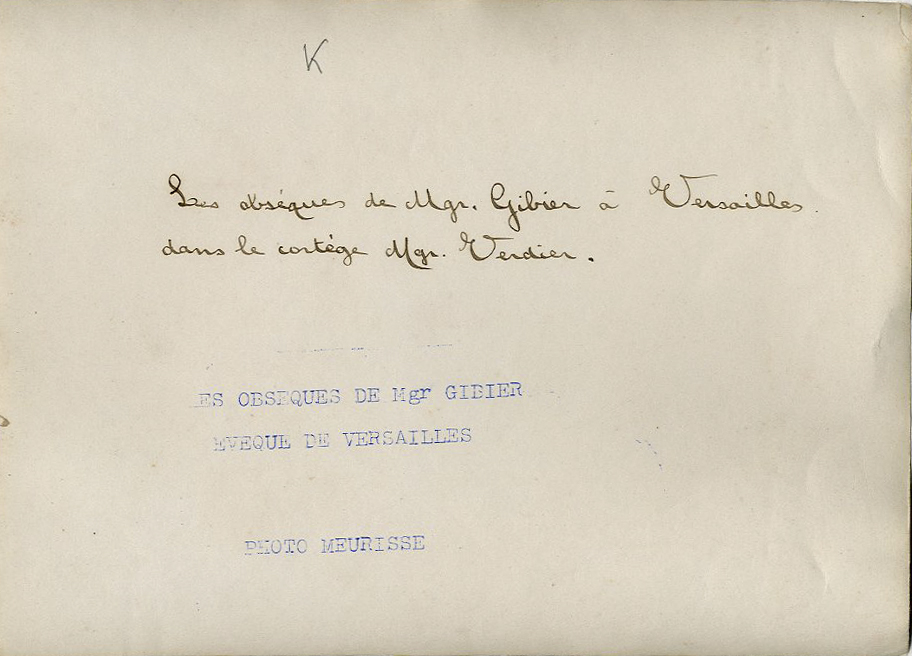 K
Les obséques de Mgr. Gibier à Versailles.
dans le cortége Mgr. Verdier.
ES OBSEQUES DE Mgr GIBIER
EVEQUE DE VERSAILLES
PHOTO MEURISSE